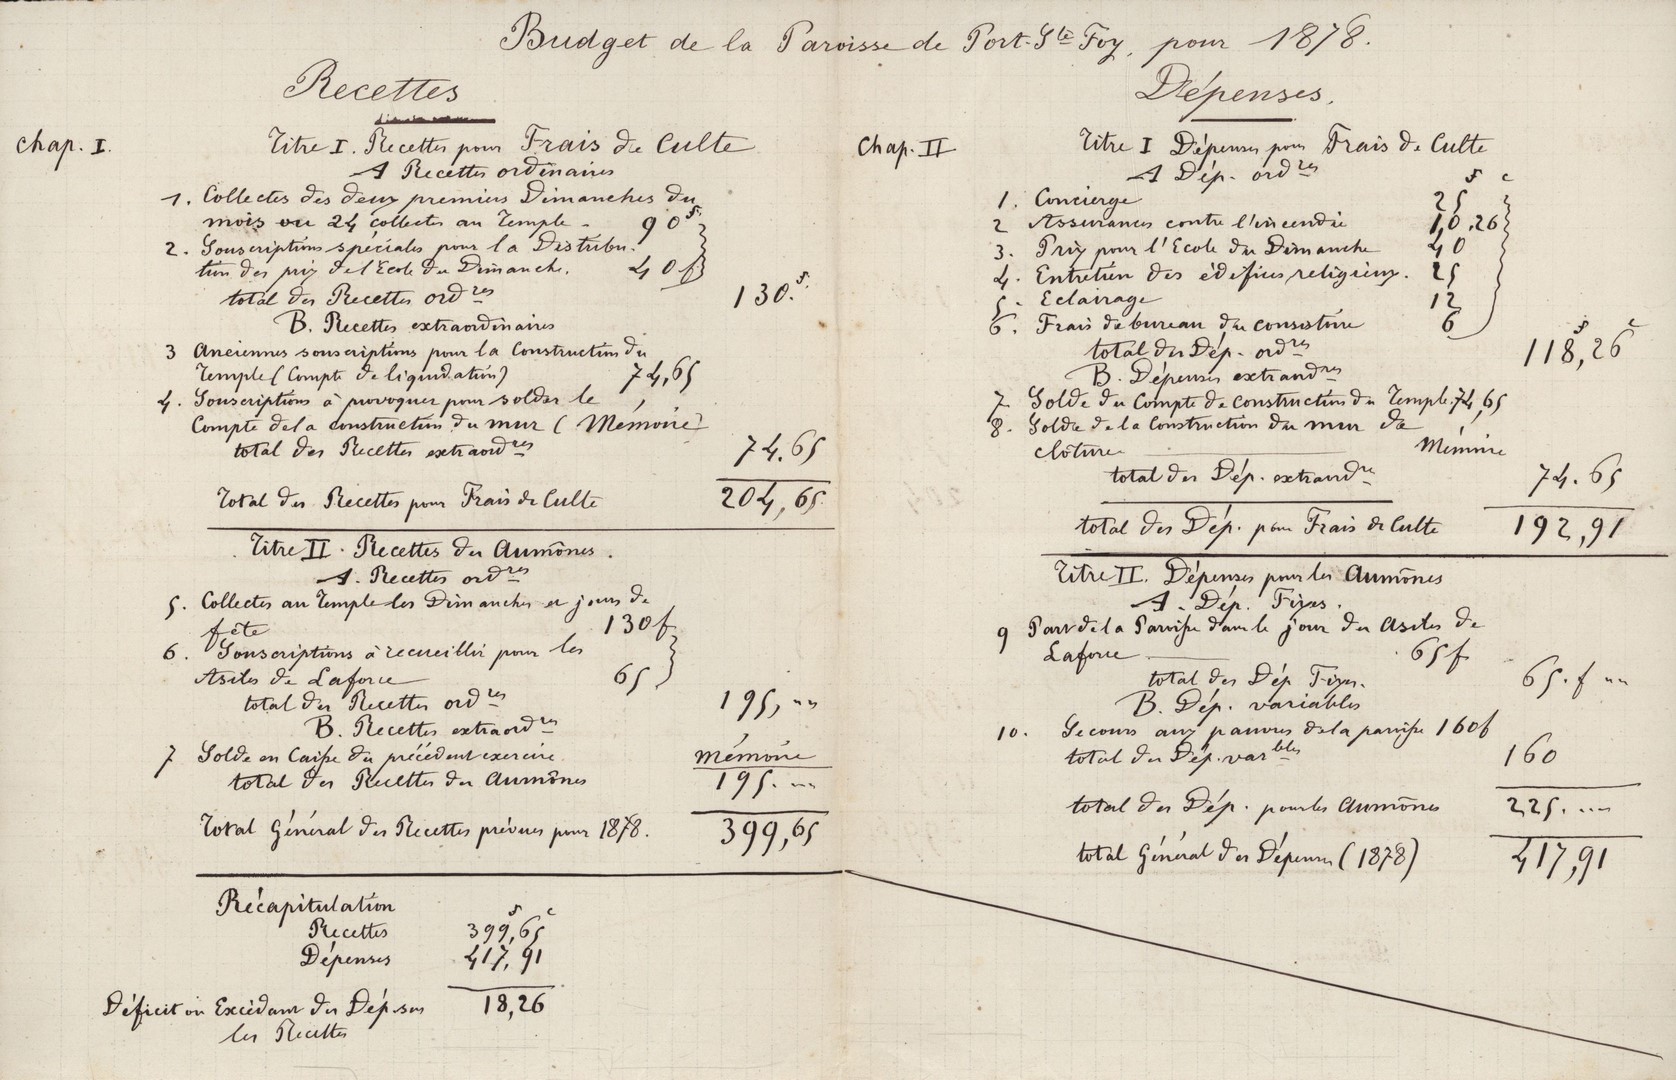 Budget de la Paroisse de Port-Ste Foy, pour 1878.
Recettes
Chap. I.
Titre I. Recettes pour Frais de Culte
A Recettes ordinaires
1. Collectes des deux premiers Dimanches du
mois ou 24 collectes au Temple - 90 f.
2. Souscriptions spéciales pour la Distribu-
tion des prix de l'Ecole du Dimanche. 40 f
total des Recettes ordres 130. f.
B. Recettes extraordinaires
3 Anciennes souscriptions pour la Construction du
Temple (Compte de liquidation) 74,65
4. Souscriptions à provoquer pour solder le
Compte de la construction du mur (Mémoire)
total des Recettes extraordres 74.65
Total des Recettes pour Frais de Culte 204,65
Titre II. Recettes des Aumônes.
A. Recettes ordres
5. Collectes au Temple les Dimanches et jours de
fête 130 f
6. Souscriptions à recueillir pour les
Asiles de Laforce 65
total des Recettes ordres 195, ""
B. Recettes extraordres
7 Solde en Caisse du précédent exercice mémoire
total des Recettes des Aumônes 195. ""
Total Général des Recettes prévues pour 1878. 399,65
Récapitulation
f c
Recettes 399,65
Dépenses 417,91
Déficit ou Excédant des Dép. sur 18,26
les Recettes
Dépenses.
Chap. II
Titre I Dépenses pour Frais de Culte
A Dép. ordres f c
1. Concierge 25
2 Assurances contre l'incendie 10.26
3. Prix pour l'Ecole du Dimanche 40
4. Entretien des édifices religieux. 25
5. Eclairage 12
6. Frais de bureau du consistoire 6
total des Dép. ordres 118,26 f c
B. Dépenses extraordres
7 Solde du Compte de construction du Temple. 74,65
8. Solde de la Construction du mur de
clôture Mémoire
total des Dép. extraordre 74.65
total des Dép. pour Frais de Culte 192,91
Titre II. Dépenses pour les Aumônes
A. Dép. Fixes.
9 Part de la Paroisse dans le jour des Asiles de
Laforce 65 f
total des Dép Fixes. 65. f ""
B. Dép. variables
10. Secours aux pauvres de la paroisse 160 f
total des Dép. varbles 160
total des Dép. pour les Aumônes 225. ""
total Général des Dépenses (1878) 417,91